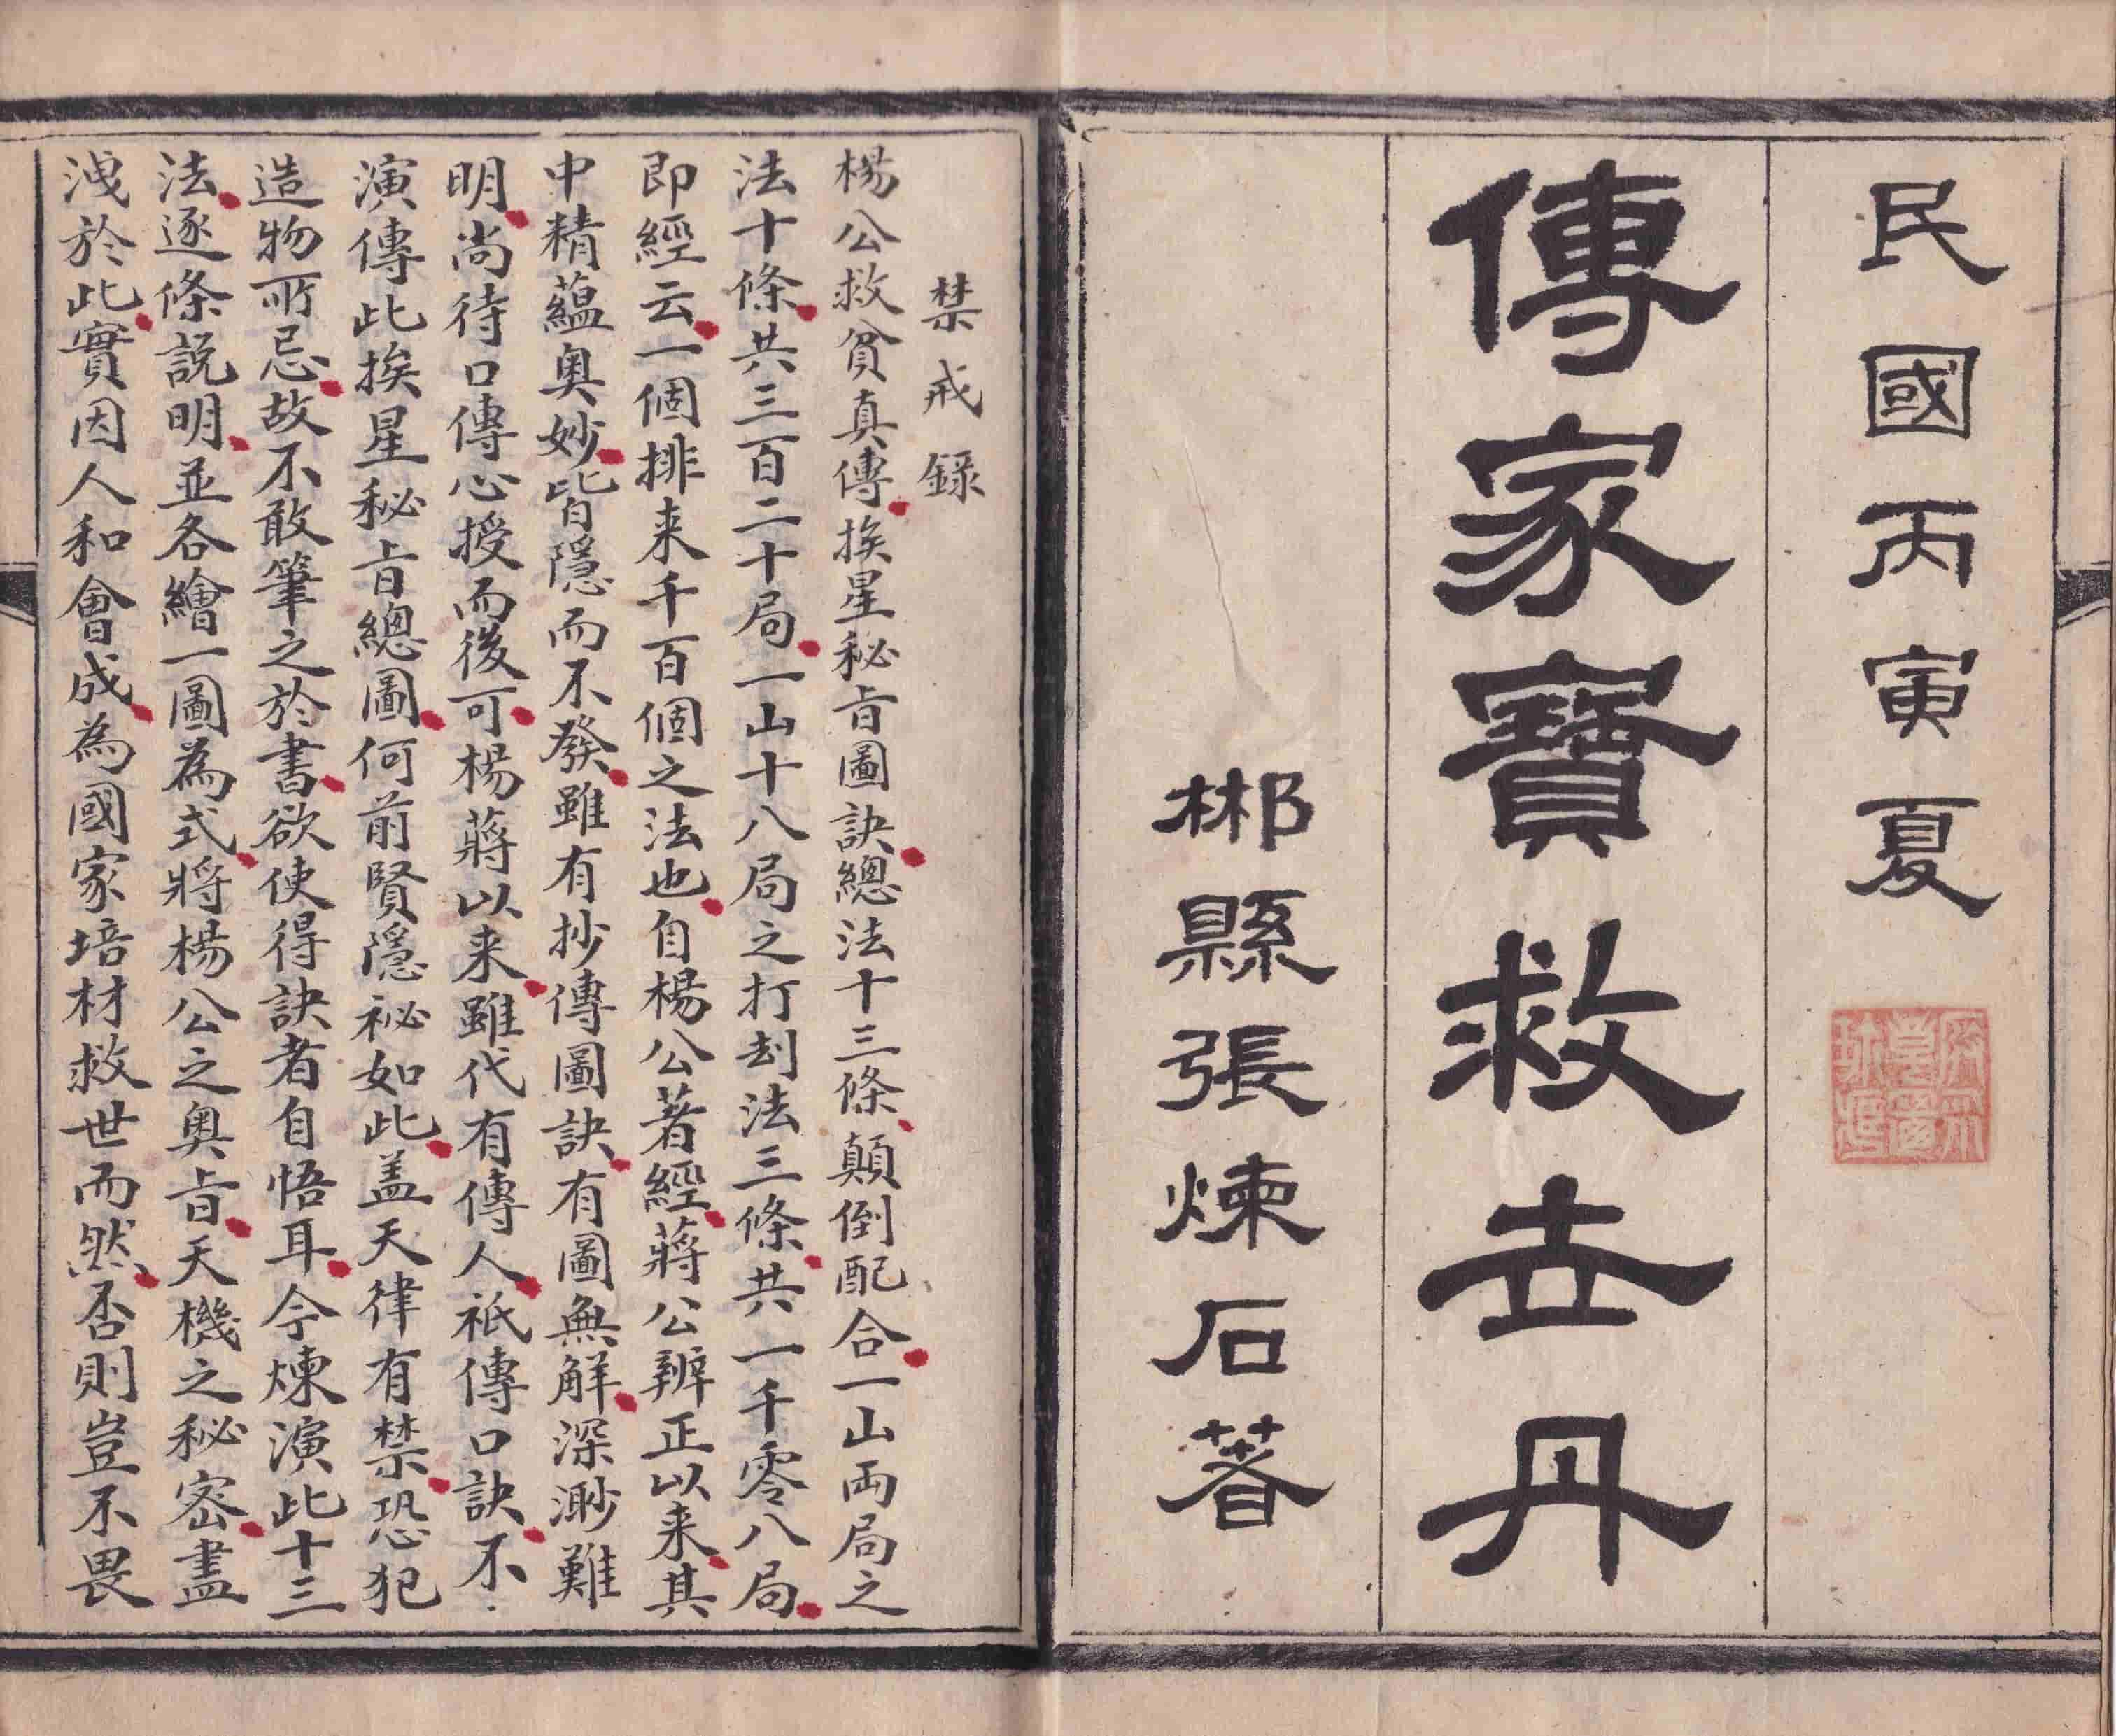 民國丙寅夏
傳家寶救世丹
郴縣張煉石著
禁戒録
楊公救貧真傳挨星秘旨圖訣總法十三條顛倒配合一山兩局之
法十條共三百二十局一山十八局之打刦法三條共一千零八局
即經云一個排来千百個之法也自楊公著經蔣公辨正以来其
中精蘊奥妙皆隱而不發雖有抄傳圖訣有圖無解深渺難
明尚待口傳心授而後可楊蔣以来雖代有傳人祇傳口訣不
演傳此挨星秘旨總圖何前賢隱祕如此盖天律有禁恐犯
造物所忌故不敢筆之於書欲使得訣者自悟耳今煉演此十三
法逐條説明並各繪一圖為式將楊公之奥旨天機之秘密盡
洩於此實因人和會成為國家培材救世而然否則豈不畏